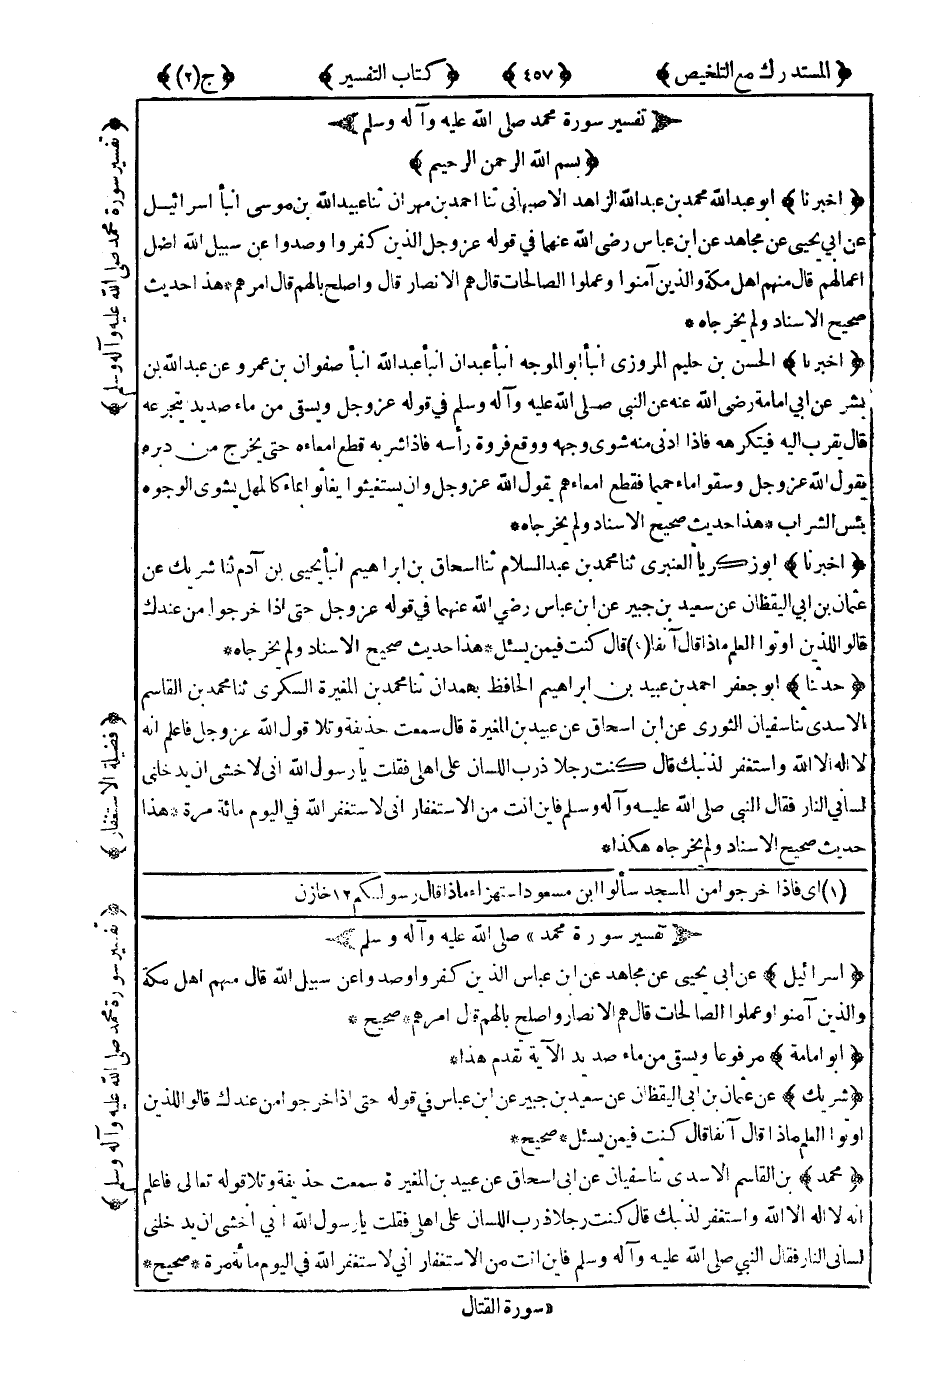 ﴿ المستدرك مع التلخيص ﴾ ﴿ ٤٥٧ ﴾ ﴿ كتاب التفسير ﴾ ﴿ ج (٢) ﴾
تفسير سورة محمد صلى الله عليه وآله وسلم
﴿ بسم الله الرحمن الرحيم ﴾
﴿ اخبرنا ﴾ ابو عبدالله محمد بن عبدالله الزاهد الاصبهانى ثنا احمد بن مهران ثنا عبيدالله بن موسى انبأ اسرائيل
عن ابي يحيى عن مجاهد عن ابن عباس رضى الله عنهما في قوله عز وجل الذين كفروا وصدوا عن سبيل الله اضل
اعمالهم قال منهم اهل مكة والذين آمنوا وعملوا الصالحات قال هم الانصار قال واصلح بالهم قال امرهم * هذا حديث
صحيح الاسناد ولم يخرجاه *
﴿ اخبرنا ﴾ الحسن بن حليم المروزى انبأ ابو الموجه انبأ عبدان انبأ عبدالله انبأ صفوان بن عمرو عن عبدالله بن
بشر عن ابي امامة رضى الله عنه عن النبي صلى الله عليه وآله وسلم في قوله عز وجل ويسقى من ماء صديد يتجرعه
قال يقرب اليه فيتكرهه فاذا ادنى منه شوى وجهه ووقع فروة رأسه فاذا شربه قطع امعاءه حتى يخرج من دبره
يقول الله عز وجل وسقوا ماء حميما فقطع امعاءهم يقول الله عز وجل وان يستغيثوا يغاثوا بماء كالمهل يشوى الوجوه
بئس الشراب * هذا حديث صحيح الاسناد ولم يخرجاه *
﴿ اخبرنا ﴾ ابو زكريا العنبرى ثنا محمد بن عبدالسلام ثنا اسحاق بن ابراهيم انبأ يحيى بن آدم ثنا شريك عن
عثمان بن ابي اليقظان عن سعيد بن جبير عن ابن عباس رضي الله عنهما في قوله عز وجل حتى اذا خرجوا من عندك
قالوا للذين اوتوا العلم ماذا قال آنفا (١) قال كنت فيمن يسئل * هذا حديث صحيح الاسناد ولم يخرجاه *
﴿ حدثنا ﴾ ابو جعفر احمد بن عبيد بن ابراهيم الحافظ بهمدان ثنا محمد بن المغيرة السكرى ثنا محمد بن القاسم
الاسدى ثنا سفيان الثورى عن ابن اسحاق عن عبيد بن المغيرة قال سمعت حذيفة وتلا قول الله عز وجل فاعلم انه
لا اله الا الله واستغفر لذنبك قال كنت رجلا ذرب اللسان على اهلى فقلت يا رسول الله انى لاخشى ان يدخلنى
لسانى النار فقال النبى صلى الله عليه وآله وسلم فاين انت من الاستغفار انى لاستغفر الله في اليوم مائة مرة * هذا
حديث صحيح الاسناد ولم يخرجاه هكذا *
(١) اى فاذا خرجوا من المسجد سألوا ابن مسعود استهزاء ماذا قال رسولكم ١٢ خازن
تفسير سورة محمد » صلى الله عليه وآله وسلم
﴿ اسرائيل ﴾ عن ابى يحيى عن مجاهد عن ابن عباس الذين كفروا وصدوا عن سبيل الله قال منهم اهل مكة
والذين آمنوا وعملوا الصالحات قال هم الانصار واصلح بالهم قال امرهم * صحيح *
﴿ ابو امامة ﴾ مرفوعا ويسقى من ماء صديد الآية تقدم هذا *
﴿ شريك ﴾ عن عثمان بن ابى اليقظان عن سعيد بن جبير عن ابن عباس في قوله حتى اذا خرجوا من عندك قالوا للذين
اوتوا العلم ماذا قال آنفا قال كنت فيمن يسئل * صحيح *
﴿ محمد ﴾ بن القاسم الاسدى ثنا سفيان عن ابى اسحاق عن عبيد بن المغيرة سمعت حذيفة وتلا قوله تعالى فاعلم
انه لا اله الا الله واستغفر لذنبك قال كنت رجلا ذرب اللسان على اهلى فقلت يا رسول الله انى اخشى ان يدخلنى
لسانى النار فقال النبي صلى الله عليه وآله وسلم فاين انت من الاستغفار انى لاستغفر الله في اليوم مائة مرة * صحيح *
« سورة القتال
﴿ تفسير سورة محمد صلى الله عليه وآله وسلم ﴾
﴿ فضيلة الاستغفار ﴾
﴿ تفسير سورة محمد صلى الله عليه وآله وسلم ﴾